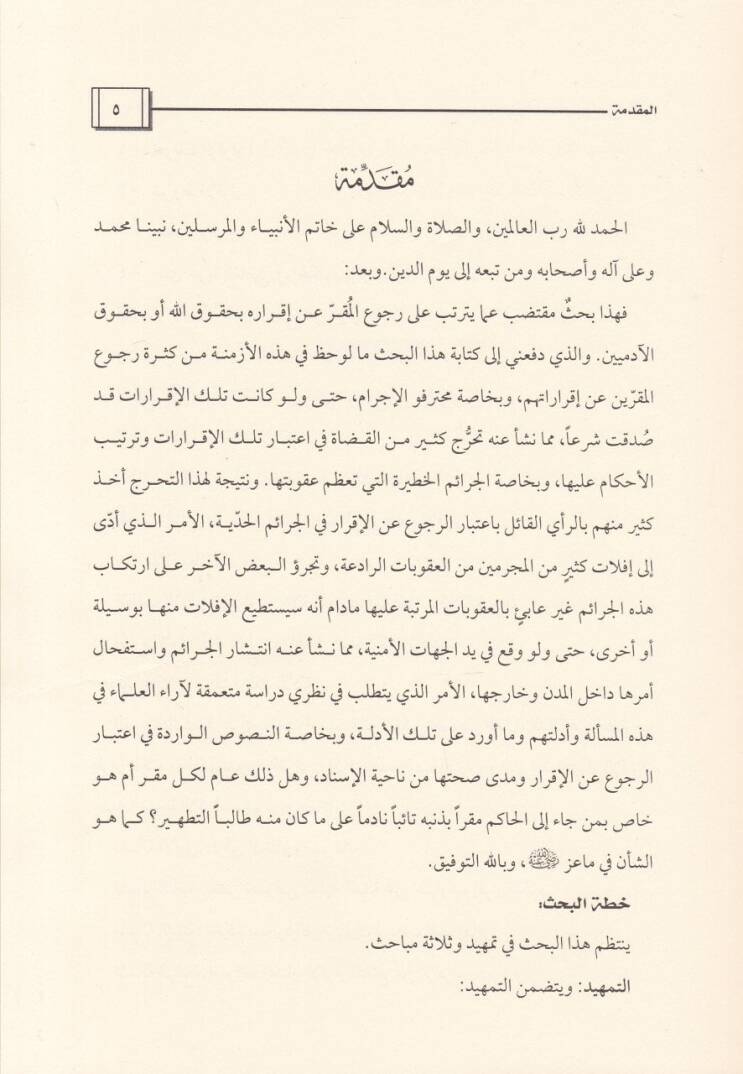 المقدمة
٥
مُقَدِّمَة
الحمد لله رب العالمين، والصلاة والسلام على خاتم الأنبياء والمرسلين، نبينا محمد
وعلى آله وأصحابه ومن تبعه إلى يوم الدين.وبعد:
فهذا بحثٌ مقتضب عما يترتب على رجوع المُقرّ عن إقراره بحقوق الله أو بحقوق
الآدميين. والذي دفعني إلى كتابة هذا البحث ما لوحظ في هذه الأزمنة من كثرة رجوع
المقرّين عن إقراراتهم، وبخاصة محترفو الإجرام، حتى ولو كانت تلك الإقرارات قد
صُدقت شرعاً، مما نشأ عنه تحرُّج كثير من القضاة في اعتبار تلك الإقرارات وترتيب
الأحكام عليها، وبخاصة الجرائم الخطيرة التي تعظم عقوبتها. ونتيجة لهذا التحرج أخذ
كثير منهم بالرأي القائل باعتبار الرجوع عن الإقرار في الجرائم الحدّية، الأمر الذي أدّى
إلى إفلات كثيرٍ من المجرمين من العقوبات الرادعة، وتجرؤ البعض الآخر على ارتكاب
هذه الجرائم غير عابئٍ بالعقوبات المرتبة عليها مادام أنه سيستطيع الإفلات منها بوسيلة
أو أخرى، حتى ولو وقع في يد الجهات الأمنية، مما نشأ عنه انتشار الجرائم واستفحال
أمرها داخل المدن وخارجها، الأمر الذي يتطلب في نظري دراسة متعمقة لآراء العلماء في
هذه المسألة وأدلتهم وما أورد على تلك الأدلة، وبخاصة النصوص الواردة في اعتبار
الرجوع عن الإقرار ومدى صحتها من ناحية الإسناد، وهل ذلك عام لكل مقر أم هو
خاص بمن جاء إلى الحاكم مقراً بذنبه تائباً نادماً على ما كان منه طالباً التطهير؟ كما هو
الشأن في ماعز رضي الله عنه، وبالله التوفيق.
خطة البحث:
ينتظم هذا البحث في تمهيد وثلاثة مباحث.
التمهيد: ويتضمن التمهيد: